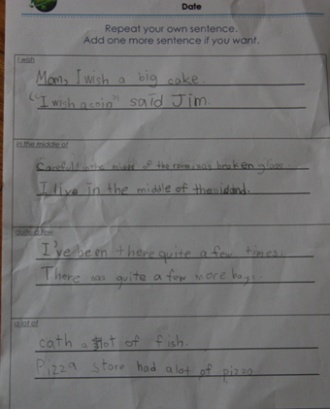 Date
Repeat your own sentence.
Add one more sentence if you want.
I wish
Mom, I wish a big cake.
"I wish again" said Jim.
in the middle of
Careful! in the middle of the room, was broken glass.
I live in the middle of the island.
quite a few
I've been there quite a few times.
There was quite a few more
a lot of
cath a lot of fish.
Pizza store had alot of pizza